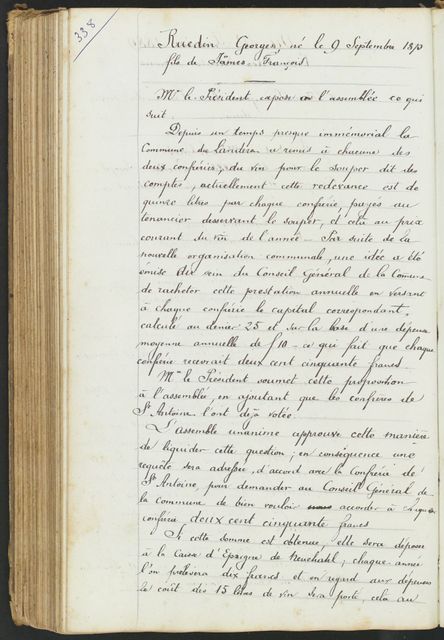 338
Ruedin Georges, né le 9 Septembre 18
fils de James François
Mr le Président expose à l'assemblée ce qui
suit
Depuis un temps presque immémorial la
Commune du Landeron a remis à chacune des
deux confréries, du vin pour le souper dit des
comptes, actuellement cette redevance est de
quinze litres par chaque confrérie, payés au
tenancier desservant le souper, et cela au prix
courant du vin de l'année – Par suite de la
nouvelle organisation communale, une idée a été
émise au sein du Conseil Général de la Commune
de racheter cette prestation annuelle en versant
à chaque confrérie le capital correspondant,
calculé au denier 25 et sur la base d'une dépense
moyenne annuelle de f 10 – ce qui fait que chaque
confrérie recevrait deux cent cinquante francs
Mr le Président soumet cette proposition
à l'assemblée, en ajoutant que les confrères de
St Antoine l'ont déjà votée.
L'assemblée unanime approuve cette manière
de liquider cette question; en conséquence une
requête sera adressée, d'accord avec la Confrérie de
St Antoine pour demander au Conseil Général de
la commune de bien vouloir accorder à chaque
confrérie deux cent cinquante francs
Si cette somme est obtenue elle sera déposée
à la Caisse d'Epargne de Neuchatel; chaque année
l'on prélevera dix francs et en regard aux dépenses
le coût des 15 litres de vin sera porté, cela au